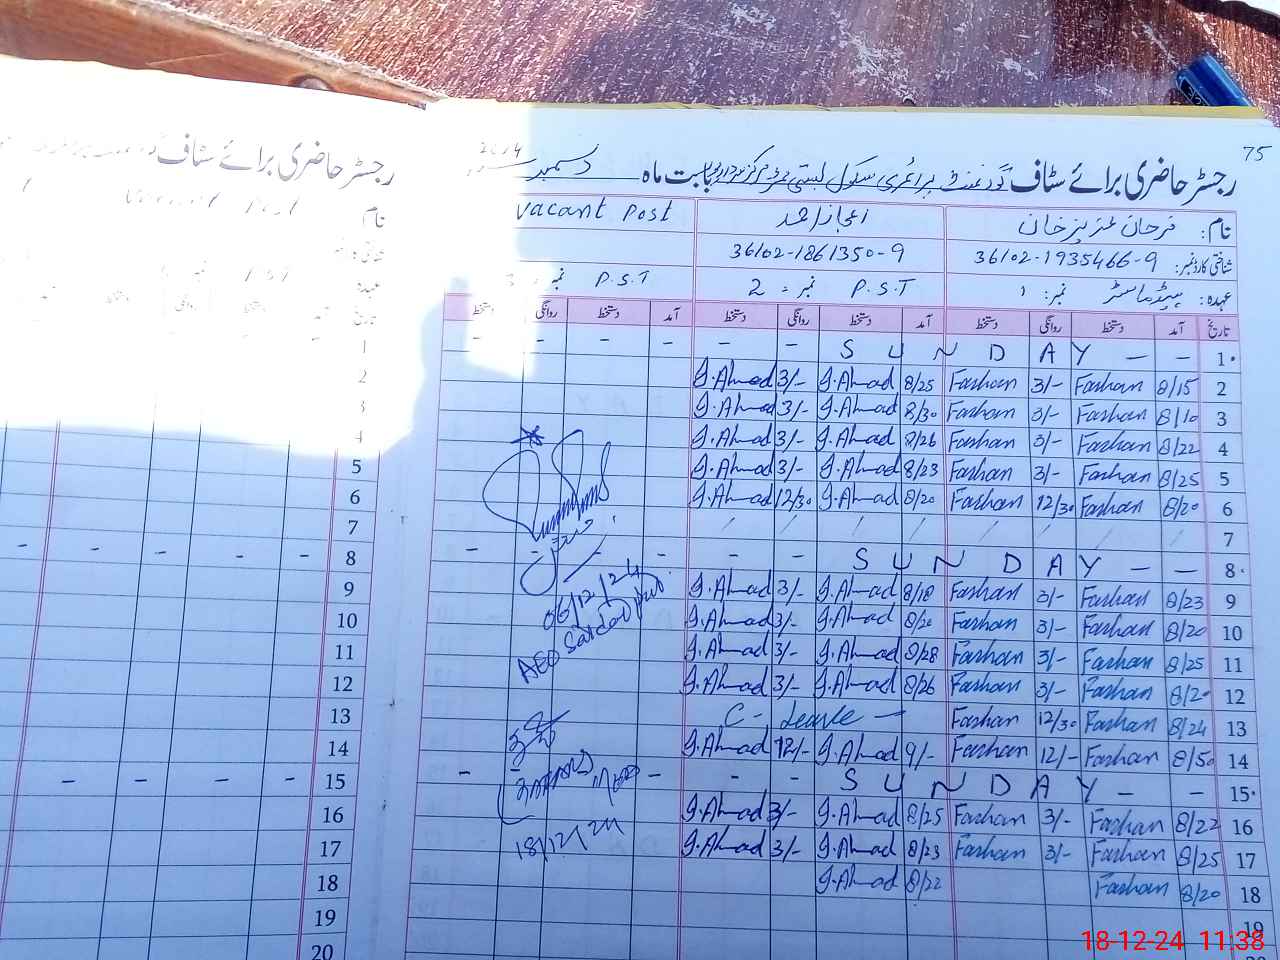 75
رجسٹر حاضری برائے سٹاف گورنمنٹ پرائمری سکول بستی بابت ماہ دسمبر 2024
نام: فرحان عزیز خان
اعجاز احمد
Vacant Post
شناختی کارڈ نمبر: 36102-1935466-9
36102-1861350-9
عہدہ: ہیڈ ماسٹر نمبر: 1
P.S.T نمبر: 2
P.S.T نمبر: 3
تاریخ آمد دستخط روانگی دستخط آمد دستخط روانگی دستخط آمد دستخط روانگی دستخط
1 - - S U N D A Y - - - - - -
2 8/15 Farhan 3/- Farhan 8/25 I.Ahmad 3/- I.Ahmad
3 8/10 Farhan 3/- Farhan 8/30 I.Ahmad 3/- I.Ahmad
4 8/22 Farhan 3/- Farhan 8/26 I.Ahmad 3/- I.Ahmad
5 8/25 Farhan 3/- Farhan 8/23 I.Ahmad 3/- I.Ahmad
6 8/20 Farhan 12/30 Farhan 8/20 I.Ahmad 12/30 I.Ahmad
7 / / / / / / / /
8 - - S U N D A Y - - - - -
9 8/23 Farhan 3/- Farhan 8/18 I.Ahmad 3/- I.Ahmad
10 8/20 Farhan 3/- Farhan 8/20 I.Ahmad 3/- I.Ahmad
11 8/25 Farhan 3/- Farhan 8/28 I.Ahmad 3/- I.Ahmad
12 8/20 Farhan 3/- Farhan 8/26 I.Ahmad 3/- I.Ahmad
13 8/24 Farhan 12/30 Farhan C-Leave -
14 8/50 Farhan 12/- Farhan 9/- I.Ahmad 12/- I.Ahmad
15 - - S U N D A Y - - - - -
16 8/22 Farhan 3/- Farhan 8/25 I.Ahmad 3/- I.Ahmad
17 8/25 Farhan 3/- Farhan 8/23 I.Ahmad 3/- I.Ahmad
18 8/20 Farhan 8/22 I.Ahmad
19
06/12/24
AEO Sardar pur
18/12/24
رجسٹر حاضری برائے سٹاف
نام
Vacant Post
عہدہ
تاریخ
1
2
3
4
5
6
7
8 - - - - -
9
10
11
12
13
14
15 - - - -
16
17
18
19
20
18-12-24 11:38